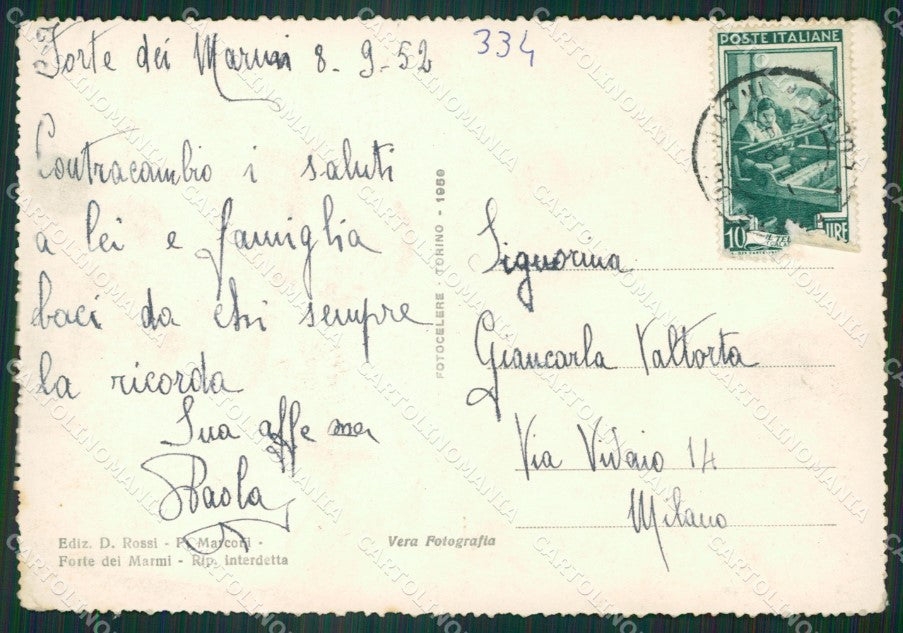 Forte dei Marmi 8-9-52
334
POSTE ITALIANE
10 LIRE
Contracambio i saluti
a lei e famiglia
baci da chi sempre
la ricorda
Sua affe ma
Paola
Signorina
Giancarla Valtorta
Via
14
Milano
FOTOCELERE - TORINO - 1950
Ediz. D. Rossi - P. Marconi -
Forte dei Marmi - Rip. interdetta
Vera Fotografia
CARTOLINOMANIA